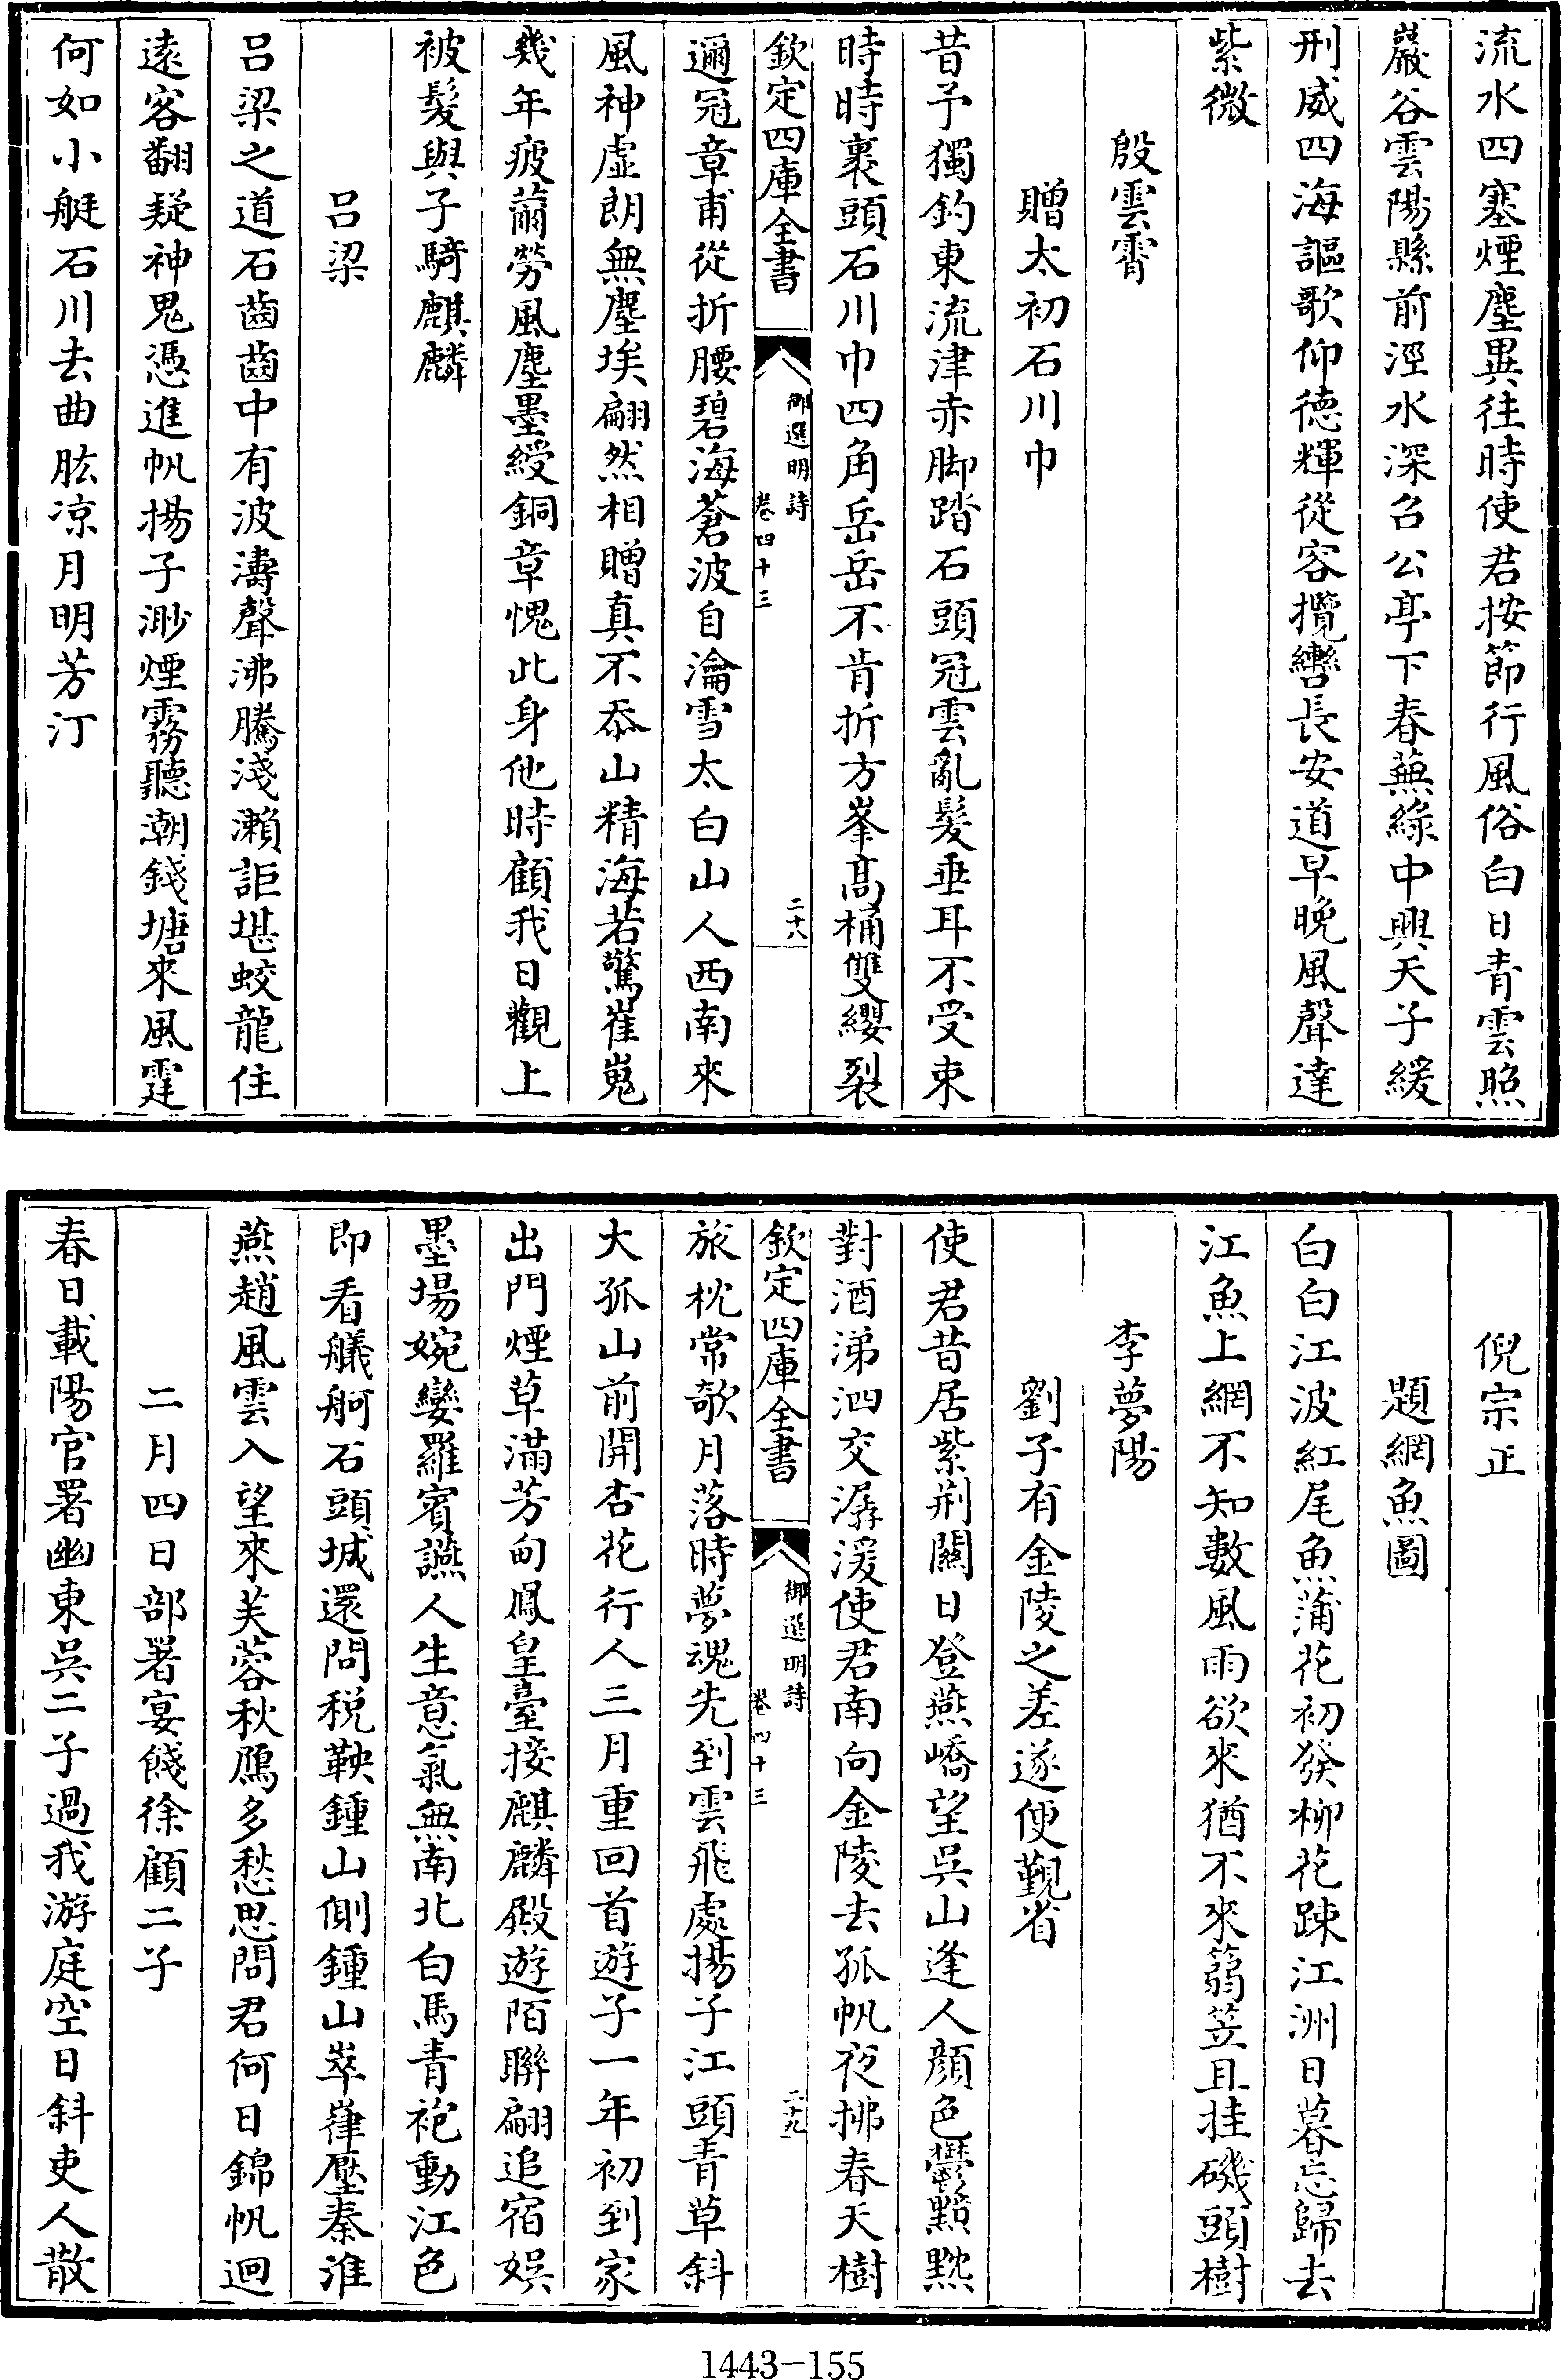 流水四塞煙塵異往時使君按節行風俗白日青雲照
巖谷雲陽縣前涇水深召公亭下春蕪綠中興天子緩
刑威四海謳歌仰德輝從容攬轡長安道早晚風聲達
紫微
殷雲霄
贈太初石川巾
昔予獨釣東流津赤脚踏石頭冠雲亂髮垂耳不受束
時時裹頭石川巾四角岳岳不肯折方峯高桶雙纓裂
欽定四庫全書
御選明詩
卷四十三
二十八
邇冠章甫從折腰碧海蒼波自瀹雪太白山人西南來
風神虛朗無塵埃翩然相贈真不忝山精海若驚崔嵬
幾年疲薾勞風塵墨綬銅章愧此身他時顧我日觀上
被髮與子騎麒麟
呂梁
呂梁之道石齒齒中有波濤聲沸騰淺瀨詎堪蛟龍住
遠客翻疑神鬼憑進帆揚子渺煙霧聽潮錢塘來風霆
何如小艇石川去曲肱凉月明芳汀
倪宗正
題網魚圖
白白江波紅尾魚蒲花初發柳花踈江洲日暮忘歸去
江魚上網不知數風雨欲來猶不來蒻笠且挂磯頭樹
李夢陽
劉子有金陵之差遂便覲省
使君昔居紫荆關日登燕嶠望吳山逢人顔色鬱黯黕
對酒涕泗交潺湲使君南向金陵去孤帆夜拂春天樹
欽定四庫全書
御選明詩
卷四十三
二十九
旅枕常欹月落時夢魂先到雲飛處揚子江頭青草斜
大孤山前開杏花行人三月重回首遊子一年初到家
出門煙草滿芳甸鳳皇臺接麒麟殿遊陌聯翩追宿娛
墨場婉孌羅賓讌人生意氣無南北白馬青袍動江色
即看艤舸石頭城還問稅鞅鍾山側鍾山崒嵂壓秦淮
燕趙風雲入望來芙蓉秋鴈多愁思問君何日錦帆迴
二月四日部署宴餞徐顧二子
春日載陽官署幽東吳二子過我游庭空日斜吏人散
1443-155